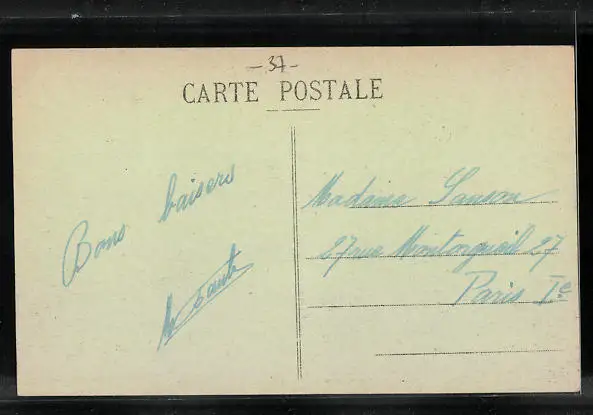 - 37 -
CARTE POSTALE
Bons baisers
Madame Sanson
27 rue Montorgueil 27
Paris Ie